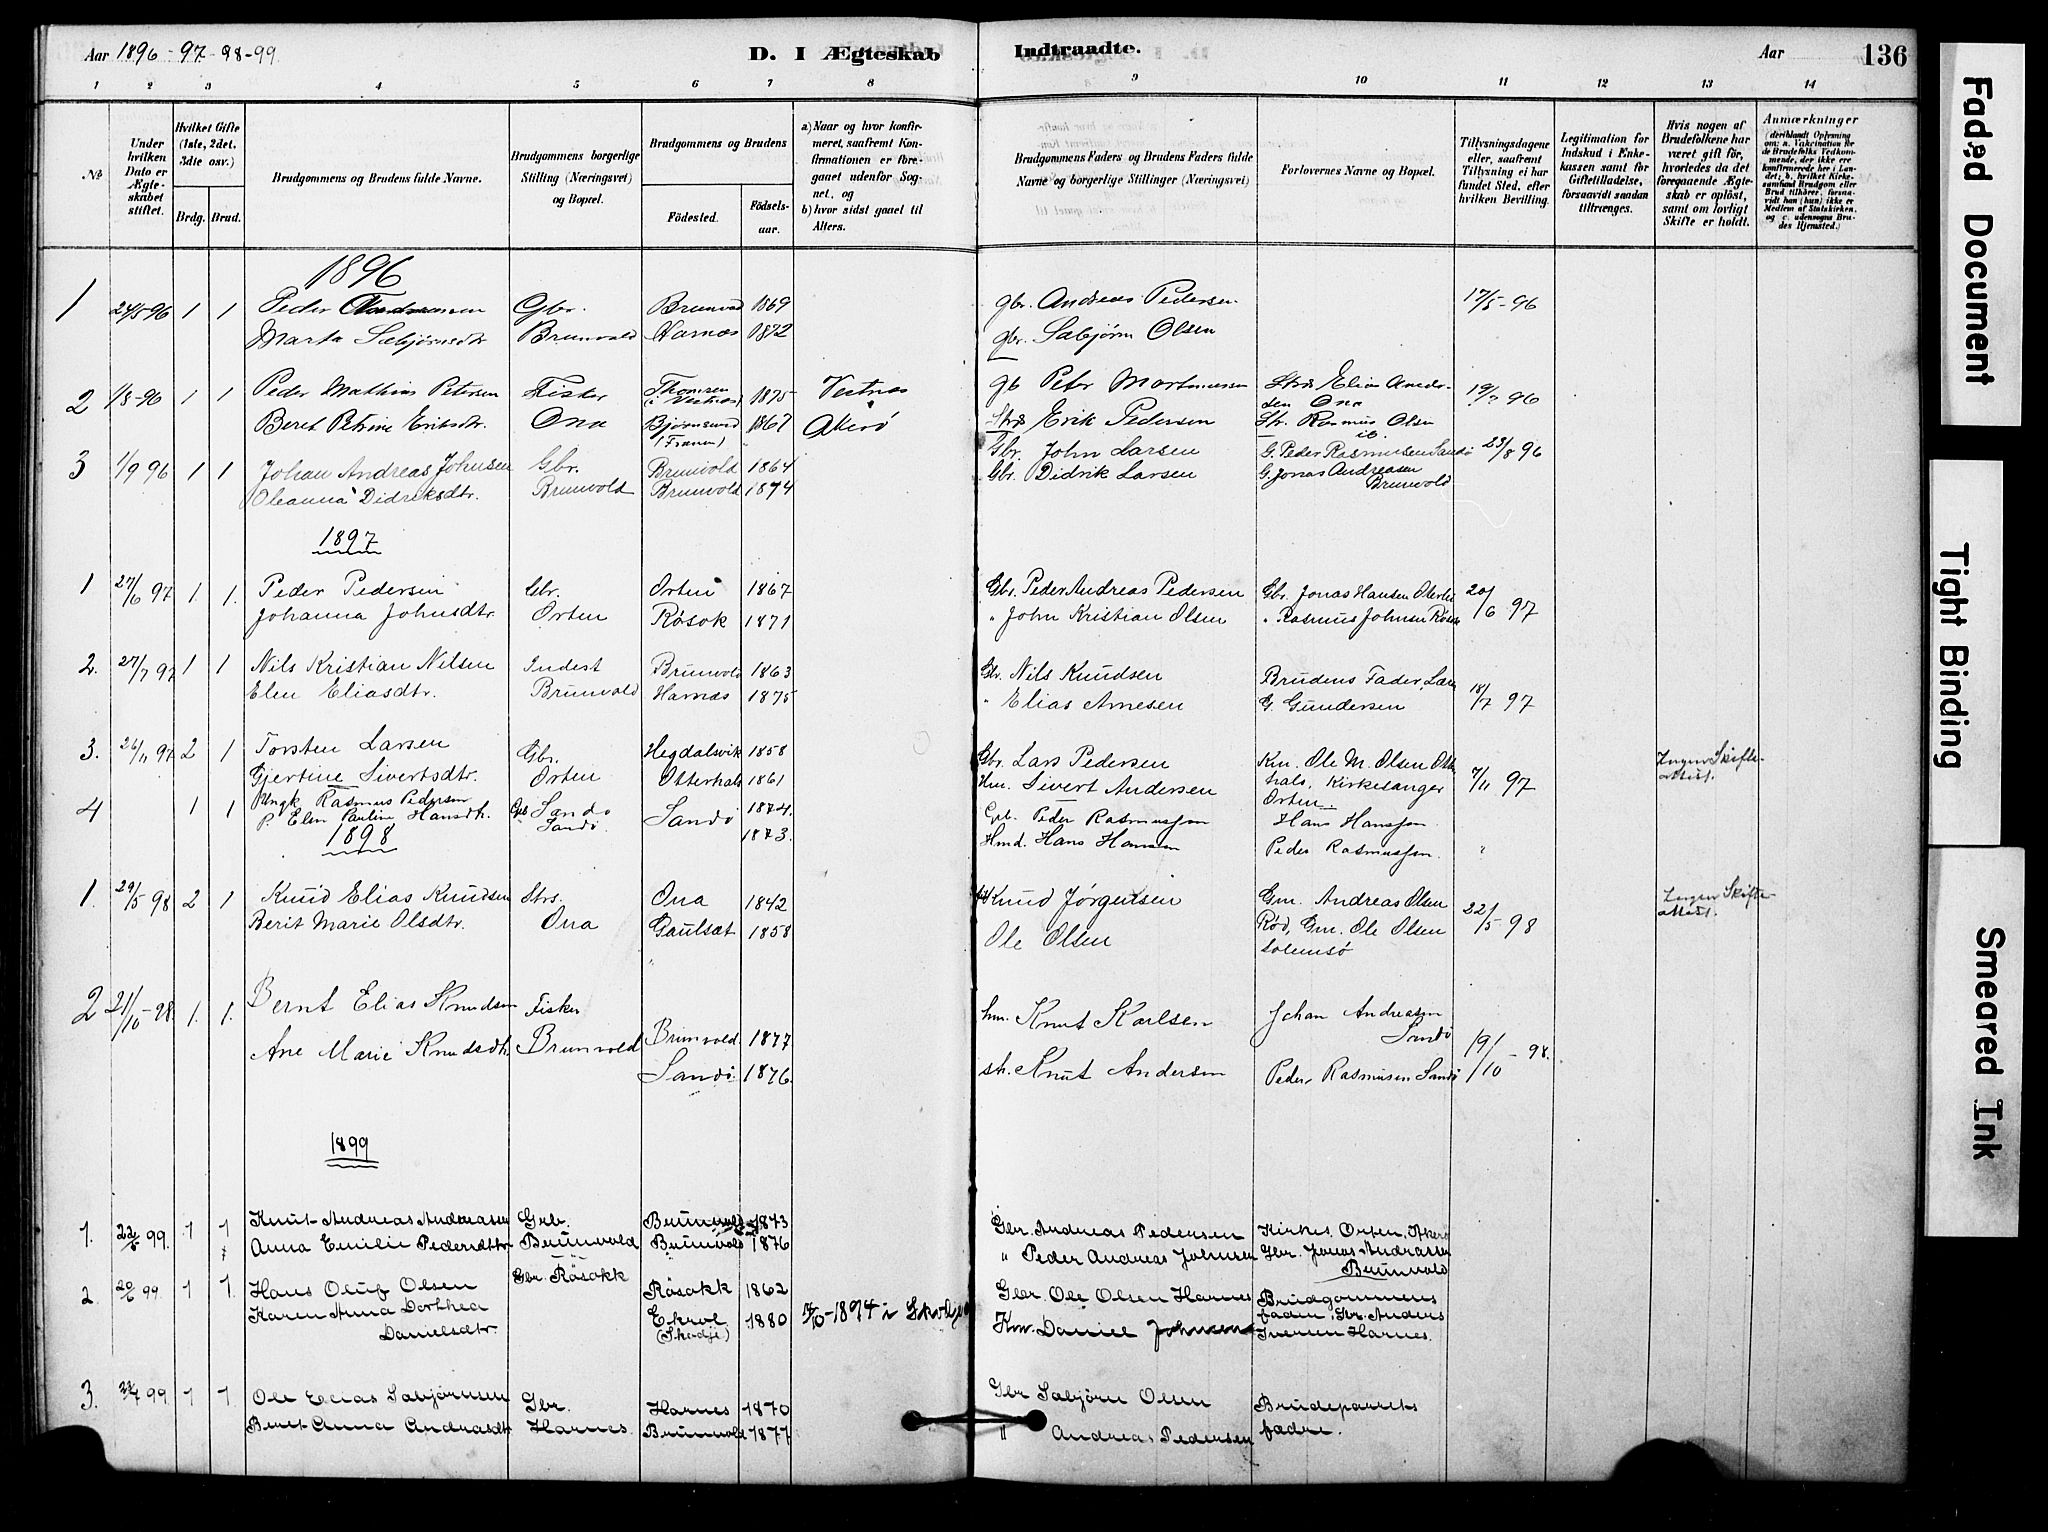 Aar 1896-97-98-99
D. I Ægteskab Indtraadte.
Aar
136
1 2 3 4 5 6 7 8 9 10 11 12 13 14
No
Under hvilken Dato er Ægteskabet stiftet.
Hvilket Gifte (1ste, 2det, 3die osv.)
Brdg. Brud.
Brudgommens og Brudens fulde Navne.
Brudgommens borgerlige Stilling (Næringsvei) og Bopæl.
Brudgommens og Brudens
Födested.
Födselsaar.
a) Naar og hvor konfirmeret, saafremt Konfirmationen er foregaaet udenfor Sognet, og
b) hvor sidst gaaet til Alters.
Brudgommens Faders og Brudens Faders fulde Navne og borgerlige Stillinger (Næringsvei)
Forlovernes Navne og Bopæl.
Tillysningsdagene eller, saafremt Tillysning ei har fundet Sted, efter hvilken Bevilling.
Legitimation for Indskud i Enkekassen samt for Giftetilladelse, forsaavidt saadan tiltrænges.
Hvis nogen af Brudefolkene har været gift før, hvorledes da det foregaaende Ægteskab er opløst, samt om lovligt Skifte er holdt.
Anmærkninger
(deriblandt Oplysning om: a. Vaccination for de Brudefolks Vedkommende, der ikke ere konfirmerede her i Landet; b. hvilket Kirkesamfund Brudgom eller Brud tilhører, forsaavidt han (hun) ikke er Medlem af Statskirken, og c. udensogns Brudes Hjemsted.)
1896
1 24/5-96 1 1 Peder Gbr. Brunvold 1869 gbr. Andreas Pedersen 17/5-96
Marta Sæbjørnsdtr Brunvold Harnæs 1872 gbr. Sæbjørn Olsen
2 1 1 Peder Mathias Petersen Fisker Thomren (i Vestnæs) 1875 Vestnæs gb Peter Mortensen Elias Andersen Ona 96
Beret Petrine Eriksdtr. Ona Bjørnsund (Frænen) 1867 Akerö Strs Erik Pedersen Str. Rasmus Olsen ib.
3 1/9 96 1 1 Johan Andreas Johnsen Gbr. Brunvold 1864 Gbr. John Larsen G. Peder Rasmussen Sandø 23/8 96
Oleanna Didriksdtr. Brunvold Brunvold 1874 Gbr. Didrik Larsen G. Jonas Andreasen Brunvold
1897
1 27/6 97 1. 1. Peder Pedersen Gbr. Orten 1867 Gbr. Peder Andreas Pedersen Gbr. Jonas Hansen 20/6 97
Johanna Johnsdtr. Orten Røsok 1871 " John Kristian Olsen " Rasmus Johnsen Røsok
2. 27/7 97 1 1 Nils Kristian Nilsen Inderst Brunvold 1863 Gbr. Nils Knudsen Brudens Fader, 18/7 97
Elen Eliasdtr. Brunvold Harnæs 1875 " Elias Arnesen G. Gundersen
3. 26/11 97 2 1 Torsten Larsen Gbr. Hegdalsvik 1858 Gbr. Lars Pedersen Km. Ole M. Olsen Otterhals, Kirkesanger Orten. 7/11 97 Ingen Skifteattest.
Gjertine Sivertsdtr. Orten Otterhals 1861 Hm. Sivert Andersen
4 1 1 Ungk Rasmus Pedersen Gb Sandø Sandö 1874. Gb. Peder Rasmussen Hans Hanssen "
P. Elen Pauline Hansdtr. Sandö 1873. Hmd. Hans Hansen Peder Rasmussen.
1898
1. 29/5 98 2 1 Knud Elias Knudsen Strs. Ona 1842 Knud Jørgensen Gm. Andreas Olsen Rød, Gm. Ole Olsen Solemsø 22/5 98 Ingen Skifteattest.
Berit Marie Olsdtr. Ona Gaulsæt 1858 Ole Olsen
2 21/10-98. 1. 1. Bernt Elias Knudsen Fisker Brunvold. 1877 hm. Knut Karlsen Johan Andreasen Sandö 19/10-98.
Ane Marie Knudsdtr. Brunvold Sandö. 1876. sh. Knut Andersen Peder Rasmusen Sandø
1899
1. 22/5 99. 1 1 Knut Andreas Andreasen Grb. Brunvold 1873 Gbr. Andreas Pedersen Kirkes. Orten, Akerö
Anna Emilie Pedersdtr. Brunvold Brunvold 1876 " Peder Andreas Johnsen Gbr. Jonas Andreasen Brunvold
2. 20/6 99. 1 1. Hans Oluf Olsen Gbr. Røsokk Røsokk 1862 Gbr. Ole Olsen Harnes Brudgommens fader, Gbr. Anders Iversen Harnes.
Karen Anna Dorthea Danielsdtr. Ekroe (Skodje) 1880 /10-1894 i Skodje Kvr. Daniel Johnsen
3. 99. 1 1 Ole Elias Sæbjørnsen Gbr. Harnes 1870 Gbr Sæbjørn Olsen Brudeparrets fædre.
Beret Anna Andreasdtr Harnes. Brunvold 1877 " Andreas Pedersen
Faded Document
Tight Binding
Smeared Ink